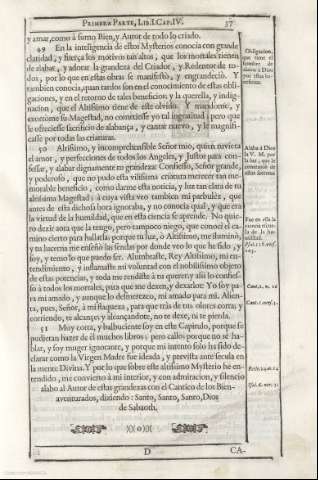 PRIMERA PARTE, LIB. I. CAP. IV. 37
y amar, como à sumo Bien, y Autor de todo lo criado.
49 En la inteligencia de estos Mysterios conocia con grande
claridad, y fuerça los motivos tan altos, que los mortales tienen
de alabar, y adorar la grandeza del Criador, y Redentor de to-
dos, por lo que en estas obras se manifestò, y engrandeciò. Y
tambien conocia, quan tardos son en el conocimiento de estas obli-
gaciones, y en el retorno de tales beneficios; y la querella, y indig-
nacion, que el Altissimo tiene de este olvido. Y mandome, y
exortòme su Magestad, no cometiesse yo tal ingratitud; pero que
le ofreciesse sacrificio de alabança, y cantar nuevo, y le magnifi-
casse por todas las criaturas.
50 Altissimo, y incomprehensible Señor mio, quien tuviera
el amor, y perfecciones de todos los Angeles, y Justos para con-
fessar, y alabar dignamente tu grandeza: Confiesso, Señor grande,
y poderoso, que no pudo esta vilissima criatura merecer tan me-
morable beneficio, como darme esta noticia, y luz tan clara de tu
altissima Magestad: à cuya vista veo tambien mi parbulèz, que
antes de esta dichosa hora ignoraba, y no conocia qual, y que era
la virtud de la humildad, que en esta ciencia se aprende. No quie-
ro dezir aora que la tengo, pero tampoco niego, que conocì el ca-
mino cierto para hallarla; porque tu luz, ò Altissimo, me iluminò,
y tu lucerna me enseñò las sendas por donde veo lo que he sido, y
soy, y temo lo que puedo ser. Alumbraste, Rey Altissimo, mi en-
tendimiento, y inflamaste mi voluntad con el nobilissimo objeto
de estas potencias, y toda me rendiste à tu querer; y assi lo confies-
so à todos los mortales, para que me dexen, y dexarlos: Yo soy pa-
ra mi amado, y aunque lo desmerezco, mi amado para mi. Alien-
ta, pues, Señor, à mi flaqueza, para que tràs de tus olores corra; y
corriendo, te alcançe; y alcançandote, no te dexe, ni te pierda.
51 Muy corta, y balbuciente soy en este Capitulo, porque se
pudieran hazer de èl muchos libros; pero callo, porque no sè ha-
blar, y soy muger ignorante, y porque mi intento solo ha sido de-
clarar como la Virgen Madre fue ideada, y prevista ante secula en
la mente Divina. Y por lo que sobre este altissimo Mysterio he en-
tendido, me convierto à mi interior, y con admiracion, y silencio
alabo al Autor de estas grandezas con el Cantico de los Bien-
aventurados, diziendo: Santo, Santo, Santo, Dios
de Sabaoth.
D
CA-
Obligacion,
que tiene el
hombre de
alabar à Dios
por estos be-
neficios.
Alaba à Dios
la V. M. por
la luz
de estos secretos.